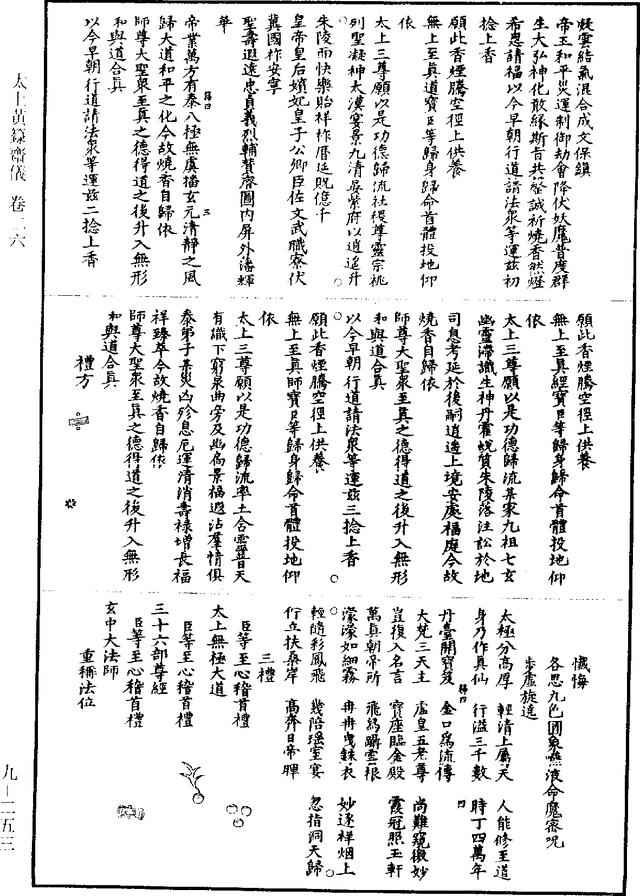 凝雲結氣混合成文保鎮
帝王和平災運制御劫會降伏妖魔普度群
生大弘神化敢緣斯旨共磬誠祈燒香然燈
希恩請福以今早朝行道請法眾等運茲初
捻上香
願此香煙騰空徑上供養
無上至真道寶臣等歸身歸命首體投地仰
依
太上三尊願以是功德歸流社稷尊靈宗祧
列聖凝神太漠宴景九清辱紫府以逍遙升
朱陵而快樂貽祥祚曆延貺億千
皇帝皇后嬪妃皇子公卿臣佐文武職寮伏
冀國祚安寧
聖壽遐遠忠貞義烈輔贊唐圖內屏外藩輝
華
帝業萬方有泰八極無虞播玄元清靜之風
歸大道和平之化今故燒香自歸依
師尊大聖眾至真之德得道之後升入無形
和與道合真
以今早朝行道請法眾等運茲二捻上香
願此香煙騰空徑上供養
無上至真經寶臣等歸身歸命首體投地仰
依
太上三尊願以是功德歸流某家九祖七玄
幽靈滯識生神丹霄蛻質朱陵落注訟於地
司息考延於後嗣逍遙上境安處福庭今故
燒香自歸依
師尊大聖眾至真之德得道之後升入無形
和與道合真
以今早朝行道請法眾等運茲三捻上香
願此香煙騰空徑上供養
無上至真師寶臣等歸身歸命首體投地仰
依
太上三尊願以是功德歸流率土含靈普天
有識下窮泉曲旁及幽扃景福遐沾羣情俱
泰弟子某災凶殄息厄運清消壽祿增長福
祥臻萃今故燒香自歸依
師尊大聖眾至真之德得道之後升入無形
和與道合真
禮方
懺悔
各思九色圓象嚥液命魔密呪
步虛旋遶
太極分高厚 輕清上屬天 人能修至道
身乃作真仙 行溢三千數 時丁四萬年
丹臺開寶笈 金口為流傳
大梵三天主 虛皇五老尊 尚難窺微妙
豈復入名言 寶座臨金殿 霞冠照玉軒
萬真朝帝所 飛舄躡雲根
濛濛如細霧 冉冉曳銖衣 妙逐祥烟上
輕隨彩鳳飛 幾陪瑶室宴 忽指洞天歸
佇立扶桑岸 高奔日帝暉
三禮
臣等至心稽首禮
太上無極大道
臣等至心稽首禮
三十六部尊經
臣等至心稽首禮
玄中大法師
重稱法位
太上黃籙齋儀 卷二六
九-二五三